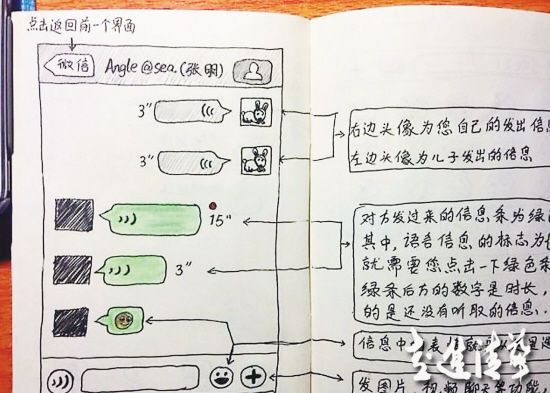 点击返回前一个界面
微信 Angle@sea.(张明)
3"
3"
15"
3"
右边头像为您自己的发出信息
左边头像为儿子发出的信息
对方发过来的信息条为绿
其中,语音信息的标志为
就需要您点击一下绿色条
绿条后方的数字是时长,
的是还没有听取的信息.
信息中
发图片,视频聊天等功能,